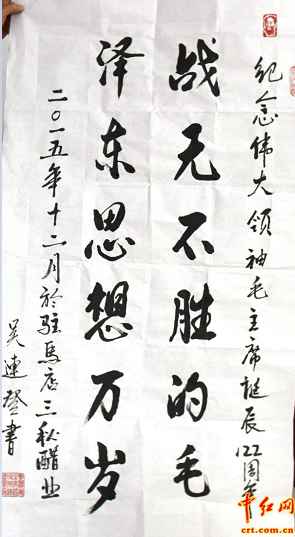 纪念伟大领袖毛主席诞辰122周年
战无不胜的毛
泽东思想万岁
二〇一五年十二月於驻马店三秋醋业
吴连登书
中红网
crt.com.cn